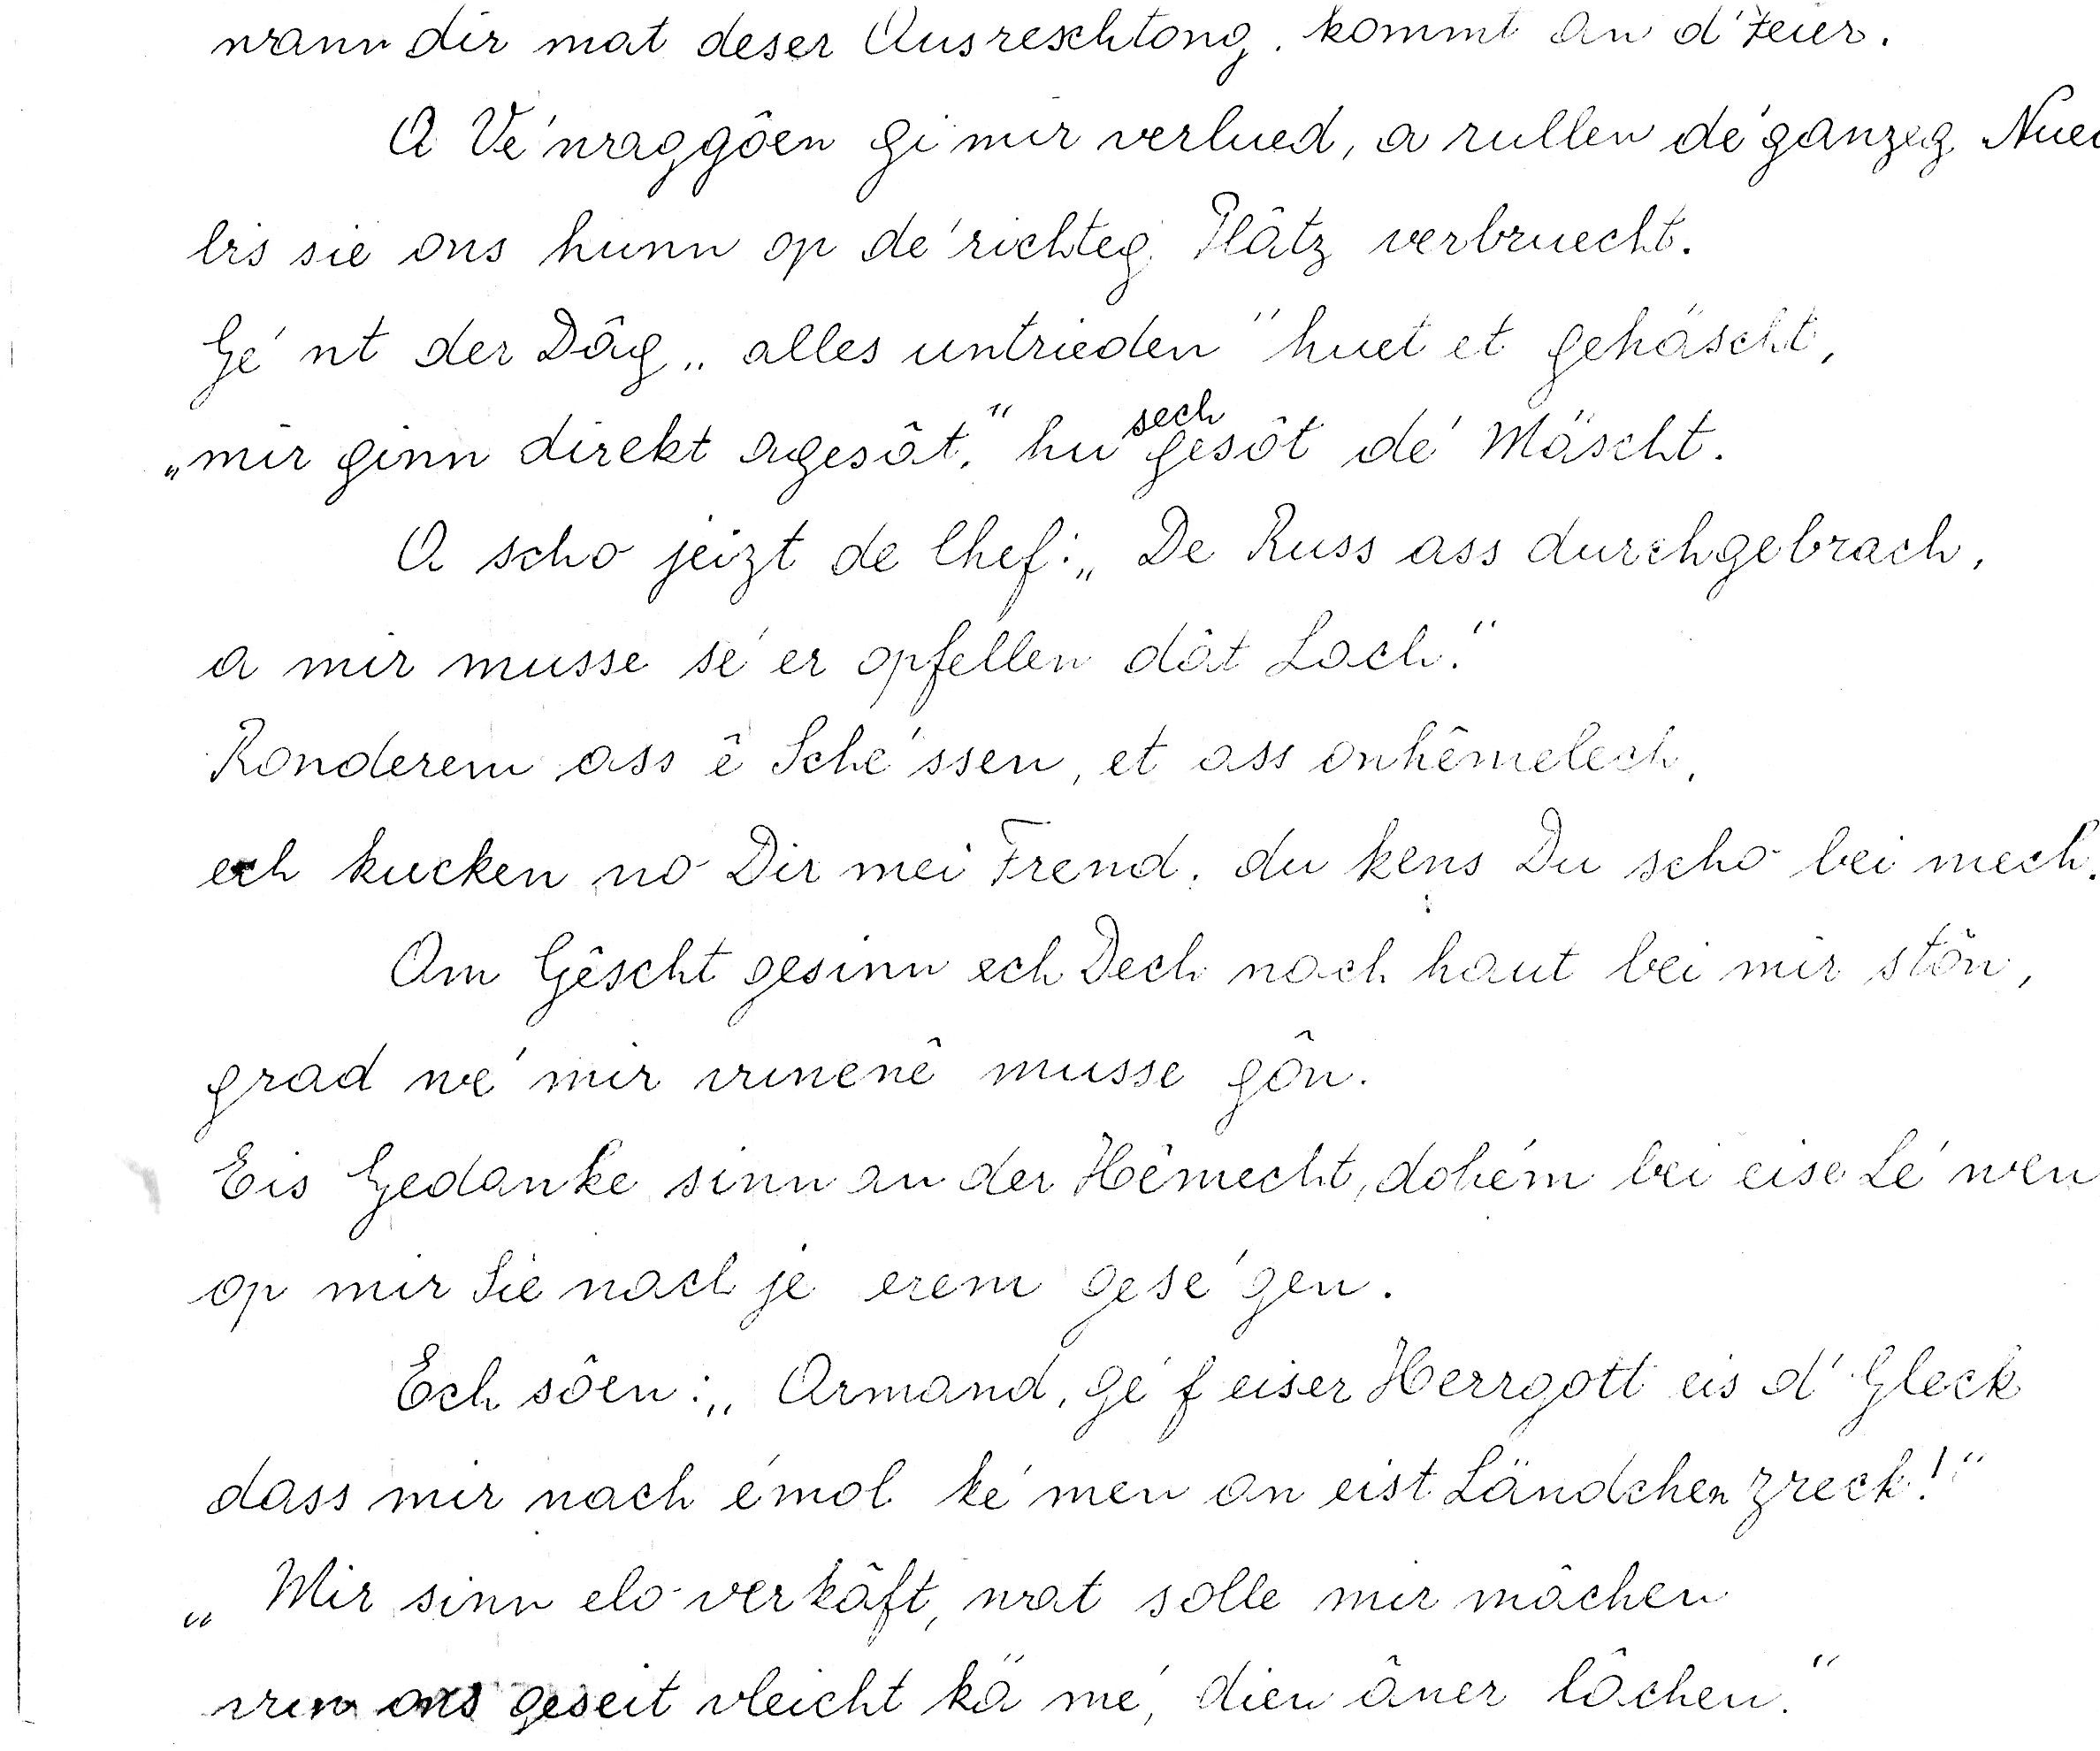 wann dir mat deser Ausreschtong. kommt an d'Feier.
A Vé'waggôen gi mir verlued, a rullen dé ganzeg Nuec
bis sie ons hunn op dé richteg Plâtz verbruecht.
Gé'nt der Dâg „alles untrieden" huet et gehäscht,
„mir ginn direkt agesât." hu sech gesôt dé Mäscht.
A scho jeizt de Chef: „De Russ ass durchgebrach,
a mir musse sé'er opfellen dât Lach."
Ronderem ass ê Sché'ssen, et ass onhêmelech,
ech kucken no Dir mei Frend, du kens Du scho bei mech.
Am Gêscht gesinn ech Dech nach haut bei mir stôn,
grad wé mir virunenê musse gôn.
Eis Gedanke sinn an der Hêmecht, dohém bei eise Lé'wen
op mir Sie nach je erem gesé'gen.
Ech sôen: „Armand, gé'f eiser Herrgott eis d'Gleck
dass mir nach émol ké'men an eist Ländchen zreck!"
„Mir sinn elo verkâft, wat solle mir mâchen
vun ons geseit vleicht kä mé, dien âner lâchen."